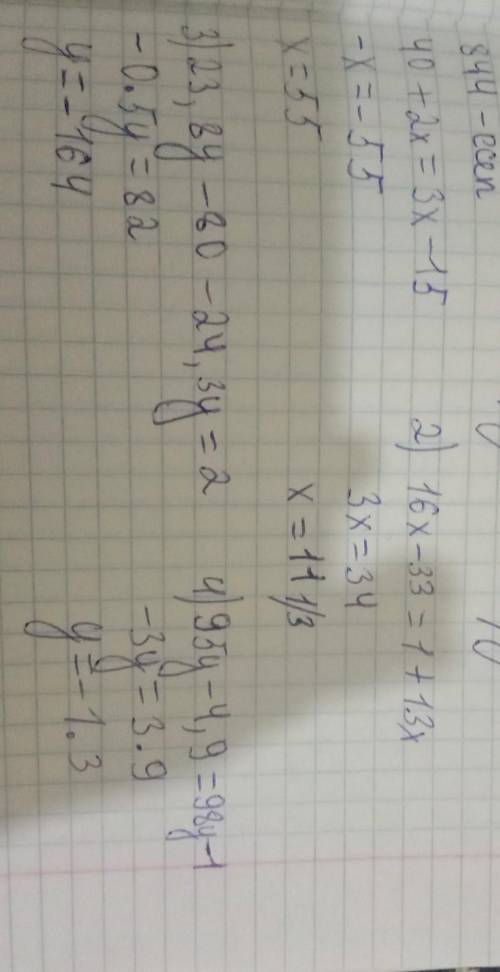 844 - есеп
40 + 2x = 3x - 15
-x = -55
x = 55
2) 16x - 33 = 1 + 13x
3x = 34
x = 11 1/3
3) 23,8y - 80 - 24,3y = 2
-0.5y = 82
y = -164
4) 95y - 4,9 = 98y - 1
-3y = 3.9
y = -1.3